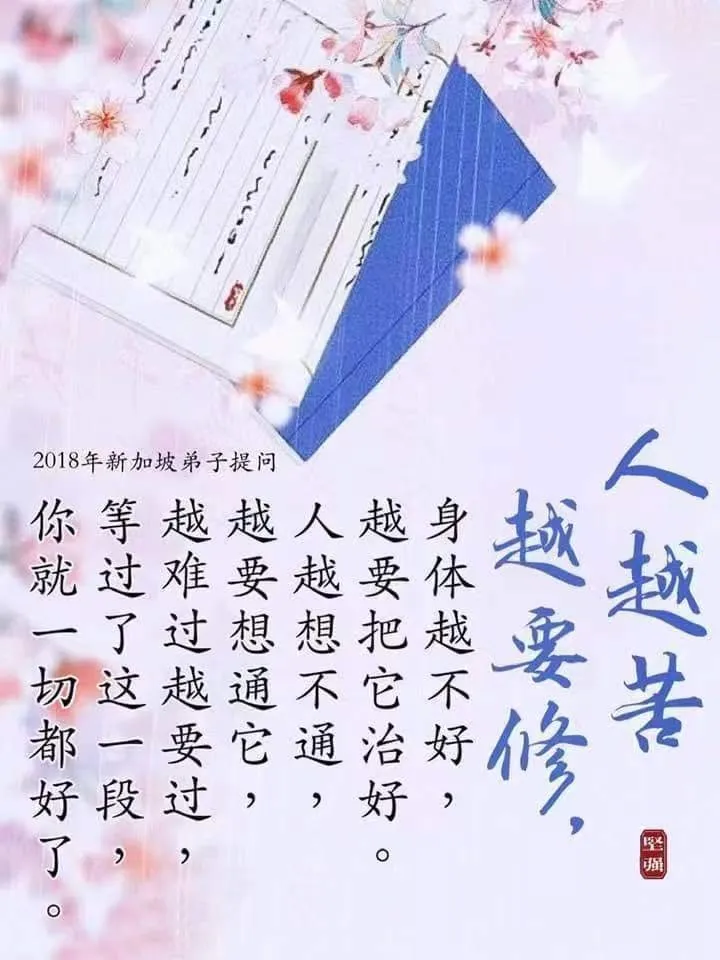 人越苦
越要修，
身体越不好，
越要把它治好。
人越想不通，
越要想通它，
越难过越要过，
等过了这一段，
你就一切都好了。
2018年新加坡弟子提问
坚强